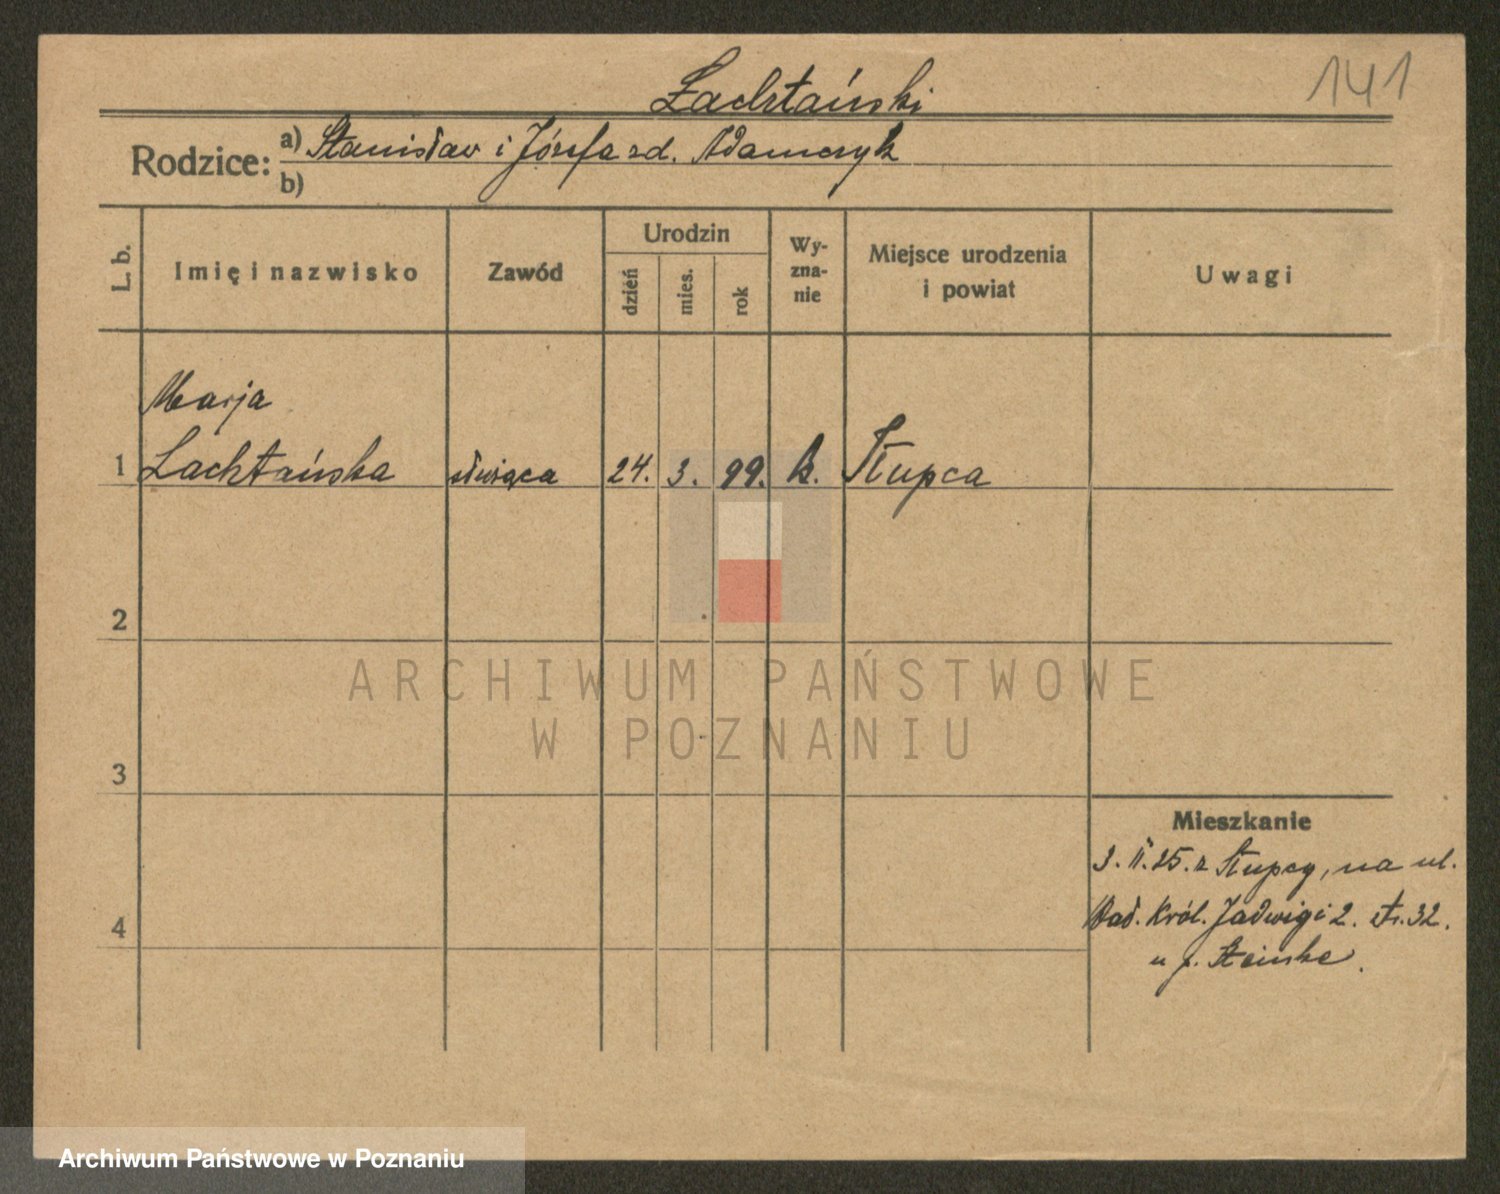 141
Łachtański
Rodzice: a) Stanisław i Józefa zd. Adamczyk
b)
L. b.
Imię i nazwisko
Zawód
Urodzin
dzień
mies.
rok
Wy-
zna-
nie
Miejsce urodzenia
i powiat
Uwagi
Marja
1 Lachtańska służąca 24. 3. 99. k. Słupca
2
3
4
Mieszkanie
3. II. 25. z Słupcy, na ul.
Król. Jadwigi 2. str. 32.
u p. Steinke.
ARCHIWUM PAŃSTWOWE
W POZNANIU
Archiwum Państwowe w Poznaniu